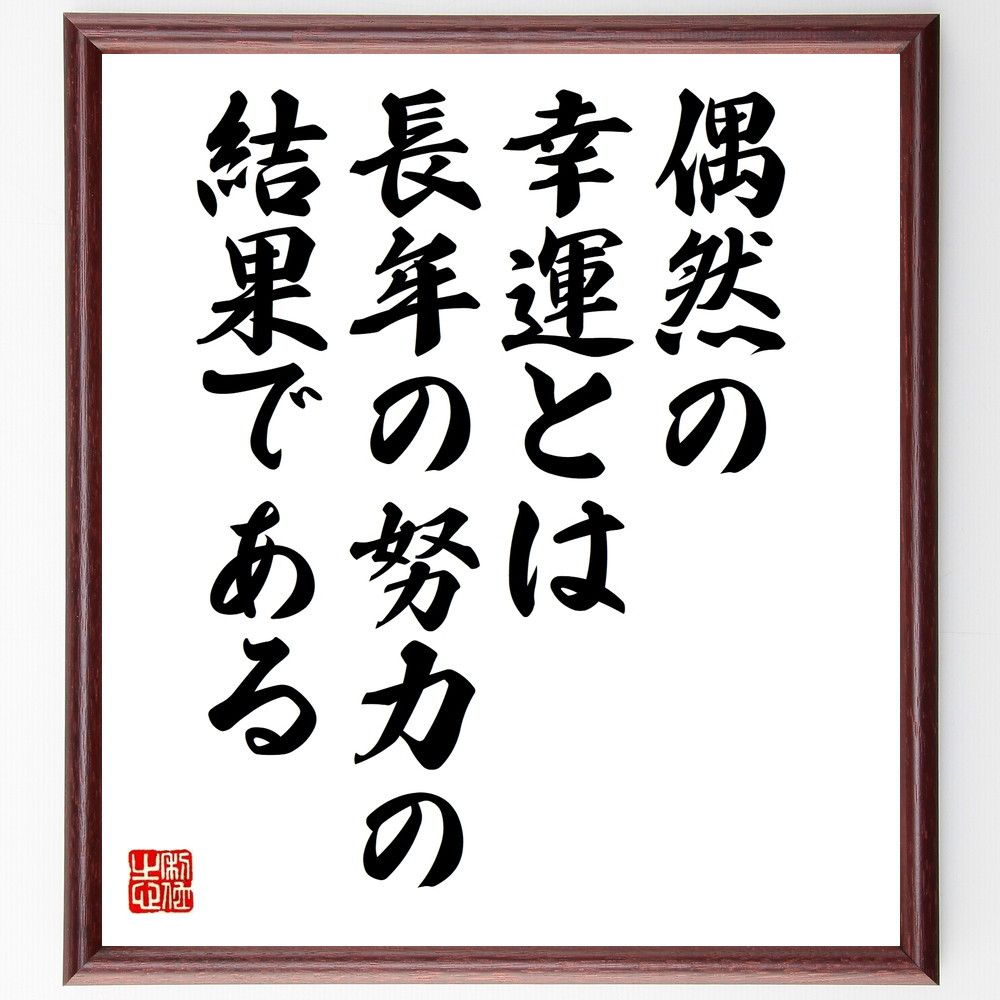 偶然の
幸運とは
長年の努力の
結果である